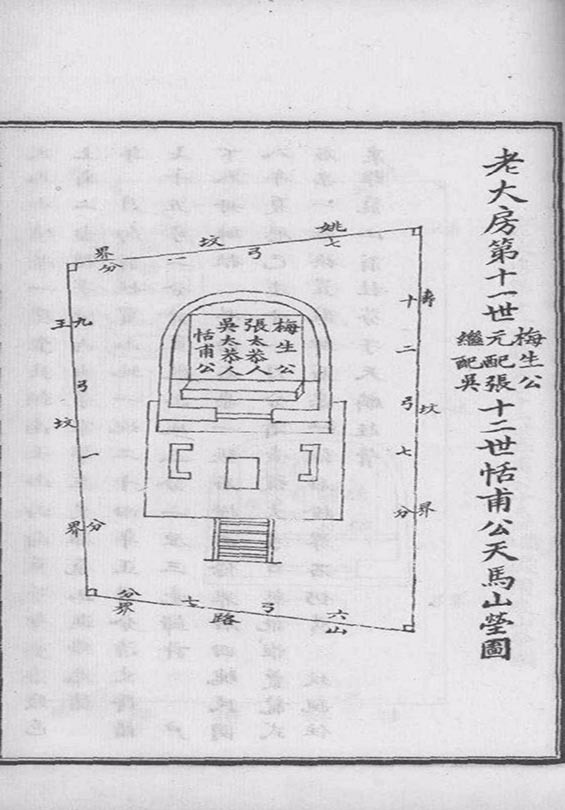 老大房第十一世
梅生公
元配張
繼配吳
十二世恬甫公天馬山塋圖
梅生公
張太恭人
吳太恭人
恬甫公
姚坟界
七弓二分
壽坟界
十二弓七分
王坟界
九弓一分
山路界
六弓七分